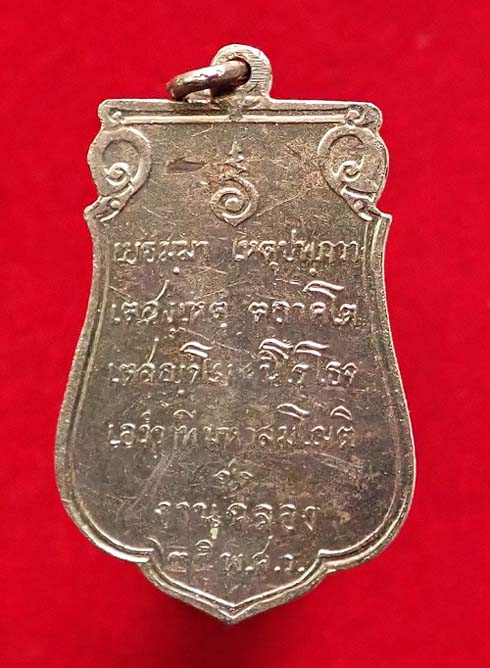 เยธมฺมา เหตุปฺปภวา
เตสํเหตุํ ตถาคโต
เตสญฺจโย นิโรโธจ
เอวํวาที มหาสมโณติ
งานฉลอง
๒๕ พ.ศ.ว.